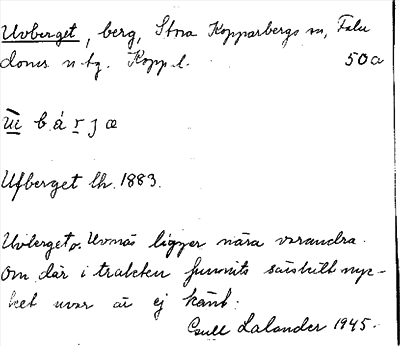 Uvberget, berg, Stora Kopparbergs sn, Falu
doms n tg. Kopp. l. 50a
b á r j æ
Ufberget lh. 1883.
Uvberget o. Uvnäs ligger nära varandra.
Om där i trakten funnits särskilt myc-
ket uvar är ej känt.
Lalander 1945.